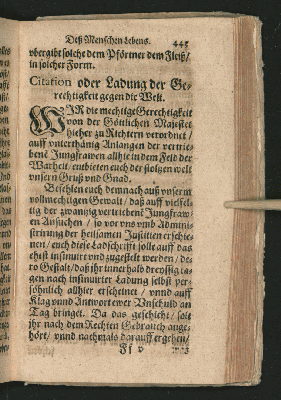 Deß Menschen Lebens. 443
vbergibt solche dem Pförtner dem Fleiß/
in solcher Form.
Citation oder Ladung der Ge-
rechtigkeit gegen die Welt.
WIR die mechtige Gerechtigkeit
von der Göttlichen Majestet
hieher zu Richtern verordnet/
auff vnterthänig Anlangen der vertrie-
bene Jungfrawen allhie in dem Feld der
Warheit/ entbieten euch der stoltzen welt
vnsern Gruß vnd Gnad.
Befehlen euch demnach auß vnserm
vollmechtigen Gewalt/ daß auff vielfel-
tig der zwanzig vertriebene Jungfraw-
en Ansuchen/ so vor vns vmb Admini-
strirung der heilsamen Justitien erschie-
nen/ euch diese Ladschrifft sollt auff das
ehest insinuirt vnd zugestelt werden/ de-
ro Gestalt/ daß jhr innerhalb dreyssig ta-
gen nach insinuirter Ladung selbst per-
söhnlich allhier erscheinet/ vnnd auff
Klag vnnd Antwort ewer Vnschuld an
Tag bringet. Da das geschicht/ solt
jhr nach dem Rechten Gebrauch ange-
hört/ vnnd nachmals darauff ergehen/
Ff v